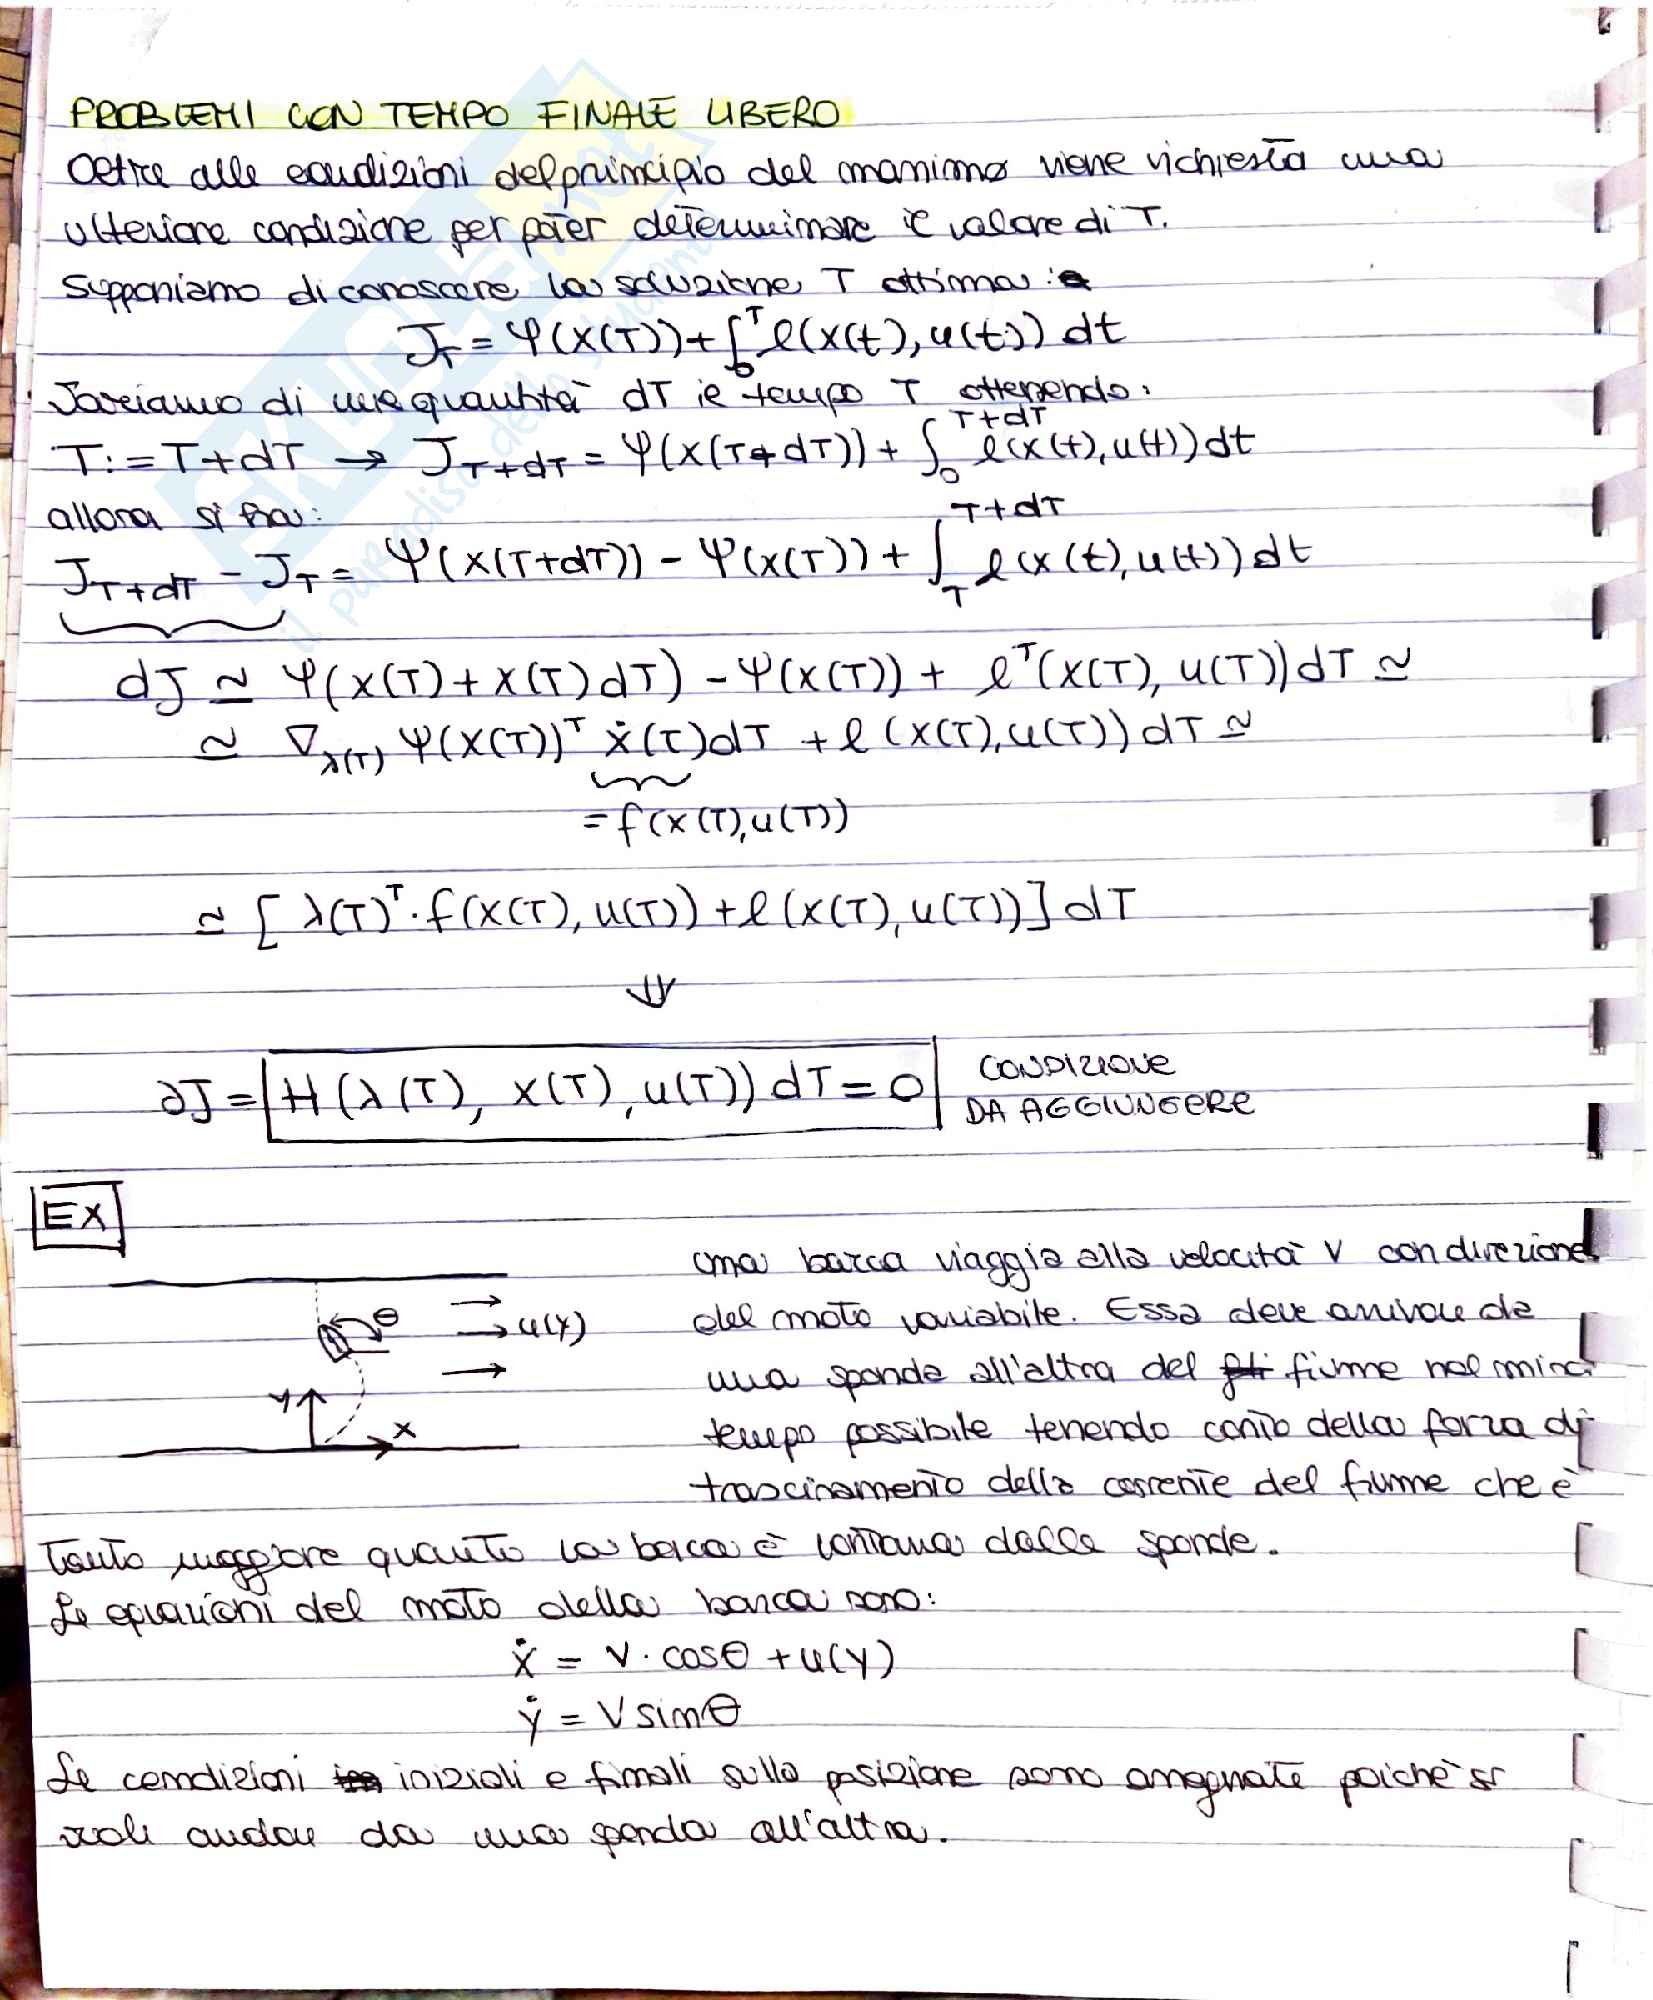 PROBLEMI CON TEMPO FINALE LIBERO
Oltre alle condizioni del principio del massimo viene richiesta una
ulteriore condizione per poter determinare il valore di T.
Supponiamo di conoscere la soluzione T ottima:
J_T = Ψ(x(T)) + ∫_0^T l(x(t), u(t)) dt
Variamo di una quantità dT il tempo T ottenendo:
T := T + dT → J_{T+dT} = Ψ(x(T+dT)) + ∫_0^{T+dT} l(x(t), u(t)) dt
allora si ha:
J_{T+dT} - J_T = Ψ(x(T+dT)) - Ψ(x(T)) + ∫_T^{T+dT} l(x(t), u(t)) dt
dJ ≃ Ψ(x(T) + x(T) dT) - Ψ(x(T)) + l^T(x(T), u(T)) dT ≃
≃ ∇_{λ(T)} Ψ(x(T))^T ẋ(T) dT + l(x(T), u(T)) dT ≃
= f(x(T), u(T))
≃ [λ(T)^T · f(x(T), u(T)) + l(x(T), u(T))] dT
⇓
∂J = H(λ(T), x(T), u(T)) dT = 0 CONDIZIONE
DA AGGIUNGERE
EX
una barca viaggia alla velocità V con direzione
θ
u(y)
del moto variabile. Essa deve arrivare da
una sponda all'altra del fiume nel
y
x
tempo possibile tenendo conto della forza di
trascinamento della corrente del fiume che è
tanto maggiore quanto la barca è lontana dalle sponde.
Le equazioni del moto della barca sono:
ẋ = V · cosθ + u(y)
ẏ = V sinθ
Le condizioni iniziali e finali sulla posizione sono assegnate poichè si
vuole andare da una sponda all'altra.
SKUOLA.net
il paradiso dello studente